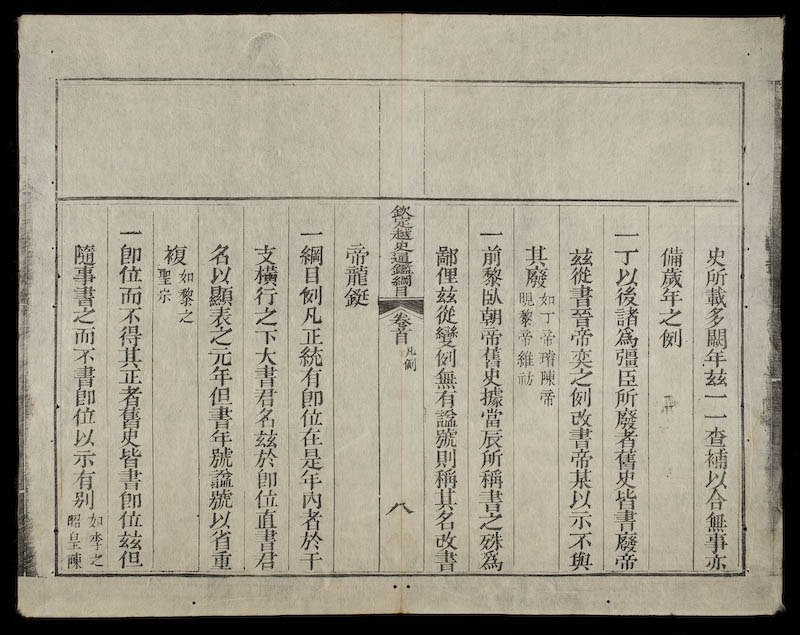 史所載多闕年兹一一查補以合無事亦
備歲年之例
一丁以後諸爲彊臣所廢者舊史皆書廢帝
兹從書晉帝奕之例改書帝某以示不與
其廢如丁帝璿陳帝
晛黎帝維祊
一前黎臥朝帝舊史據當辰所稱書之殊爲
鄙俚兹從變例無有謚號則稱其名改書
欽定越史通鑑綱目 卷首 凡例 八
帝龍鋌
一綱目例凡正統有卽位在是年內者於干
支橫行之下大書君名兹於卽位直書君
名以顯表之元年但書年號謚號以省重
複如黎之
聖宗
一卽位而不得其正者舊史皆書卽位兹但
隨事書之而不書卽位以示有別如李之
昭皇陳